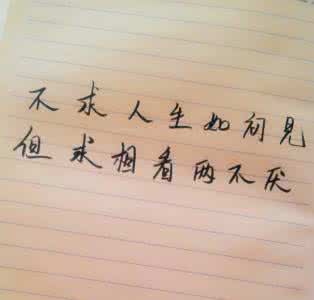 不求人生如初見
但求相看两不厌